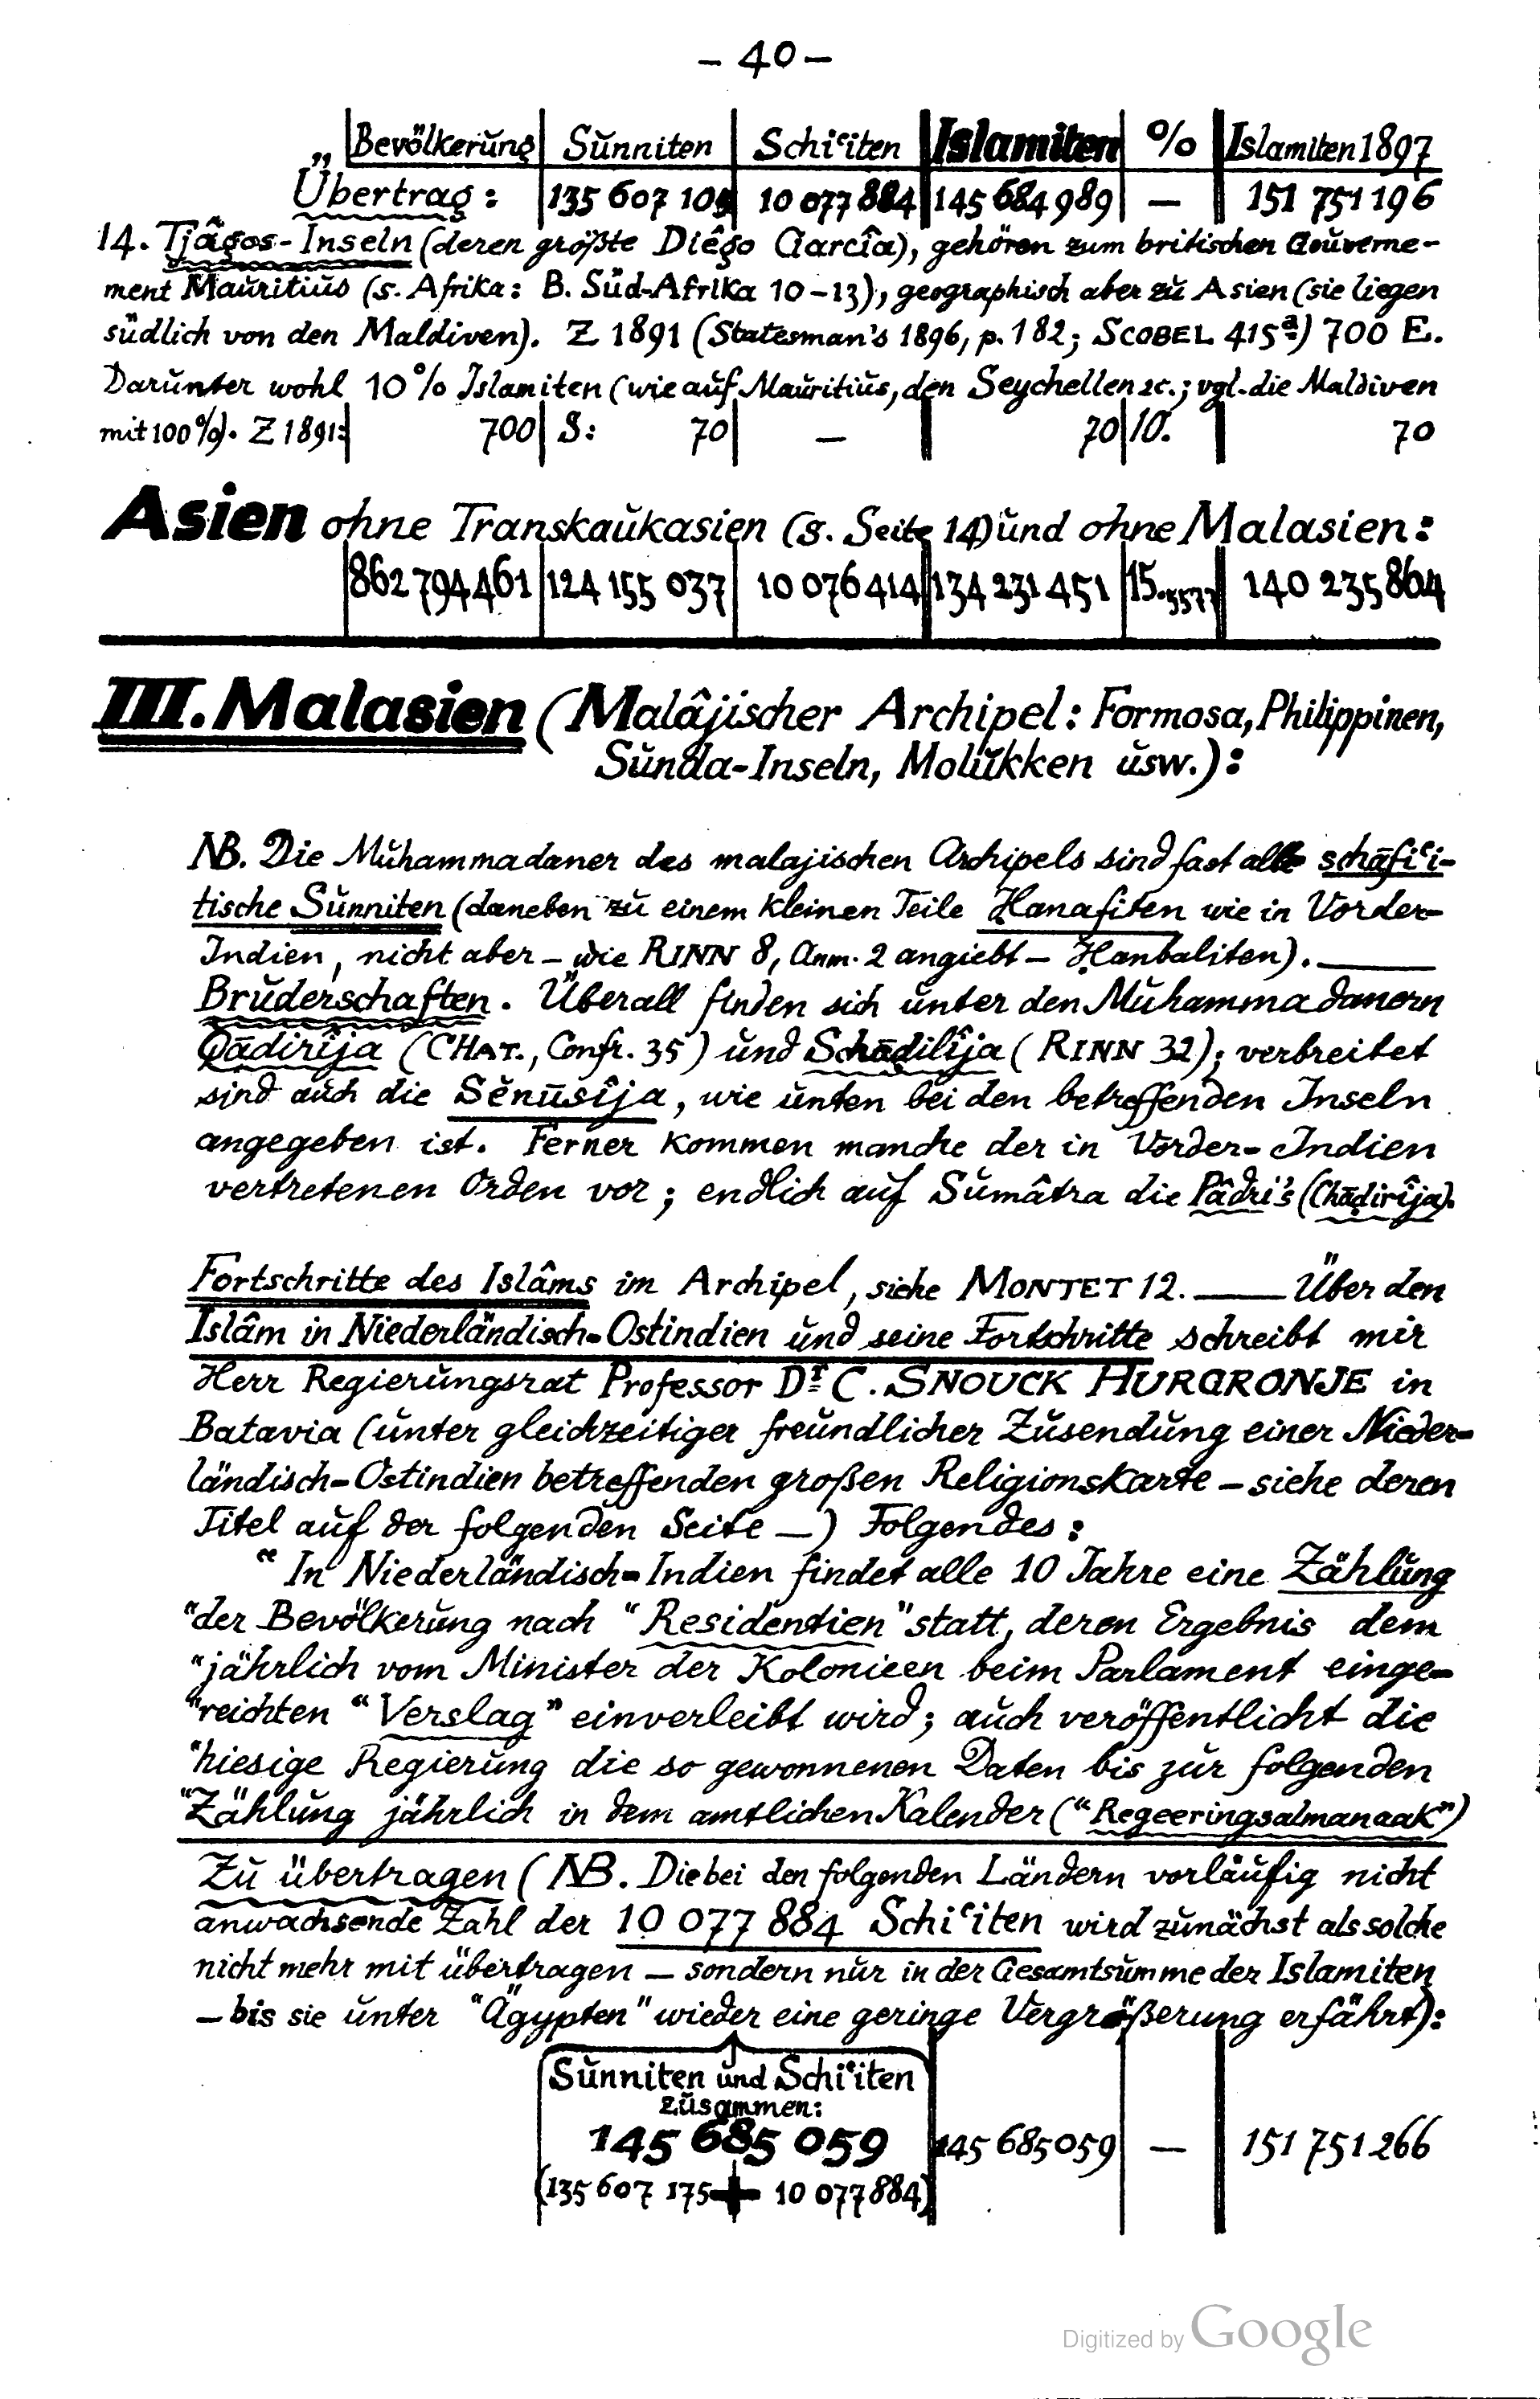 – 40 –
Bevölkerŭng Sŭnniten Schiʿiten Islamiten % Islamiten 1897
Übertrag: 135 607 105 10 077 884 145 684 989 — 151 751 196
14. Tjâgos-Inseln (deren größte Diêgo Garcîa), gehören zum britischen Goŭverne-
ment Maŭritiŭs (s. Afrika: B. Süd-Afrika 10–13), geographisch aber zŭ Asien (sie liegen
südlich von den Maldiven). Z 1891 (Statesman's 1896, p. 182; SCOBEL 415ª) 700 E.
Darŭnter wohl 10% Islamiten (wie aŭf Maŭritiŭs, den Seychellen ꝛc.; vgl. die Maldiven
mit 100%). Z 1891: 700 S: 70 — 70 10. 70
Asien ohne Transkaŭkasien (s. Seite 14) ŭnd ohne Malasien:
862 794 461 124 155 037 10 076 414 134 231 451 15.5577 140 235 864
III. Malasien (Malâjischer Archipel: Formosa, Philippinen,
Sŭnda-Inseln, Molŭkken ŭsw.):
NB. Die Mŭhammadaner des malajischen Archipels sind fast alle schāfiʿi-
tische Sŭnniten (daneben zŭ einem kleinen Teile Ḥanafiten wie in Vorder-
Indien, nicht aber – wie RINN 8, Anm. 2 angiebt – Ḥanbaliten). —
Brŭderschaften. Überall finden sich ŭnter den Mŭhammadanern
Qādirîja (CHAT., Confr. 35) ŭnd Schāḏilîja (RINN 32); verbreitet
sind aŭch die Sĕnūsîja, wie ŭnten bei den betreffenden Inseln
angegeben ist. Ferner kommen manche der in Vorder-Indien
vertretenen Orden vor; endlich aŭf Sŭmâtra die Pâdri's (Chāḍirîja).
Fortschritte des Islâms im Archipel, siehe MONTET 12. — Über den
Islâm in Niederländisch-Ostindien ŭnd seine Fortschritte schreibt mir
Herr Regierŭngsrat Professor Dr. C. SNOUCK HURGRONJE in
Batavia (ŭnter gleichzeitiger freŭndlicher Zŭsendŭng einer Nieder-
ländisch-Ostindien betreffenden großen Religionskarte – siehe deren
Titel aŭf der folgenden Seite –) Folgendes:
“In Niederländisch-Indien findet alle 10 Jahre eine Zählŭng
“der Bevölkerŭng nach “Residentien” statt, deren Ergebnis dem
“jährlich vom Minister der Kolonieen beim Parlament einge-
“reichten “Verslag” einverleibt wird; aŭch veröffentlicht die
“hiesige Regierŭng die so gewonnenen Daten bis zŭr folgenden
“Zählŭng jährlich in dem amtlichen Kalender (“Regeeringsalmanaak”)
Zŭ übertragen (NB. Die bei den folgenden Ländern vorläŭfig nicht
anwachsende Zahl der 10 077 884 Schiʿiten wird zŭnächst als solche
nicht mehr mit übertragen – sondern nŭr in der Gesamtsŭmme der Islamiten
– bis sie ŭnter “Ägypten” wieder eine geringe Vergrößerŭng erfährt):
Sŭnniten ŭnd Schiʿiten
zŭsammen:
145 685 059 145 685 059 — 151 751 266
(135 607 175 + 10 077 884)
Digitized by Google